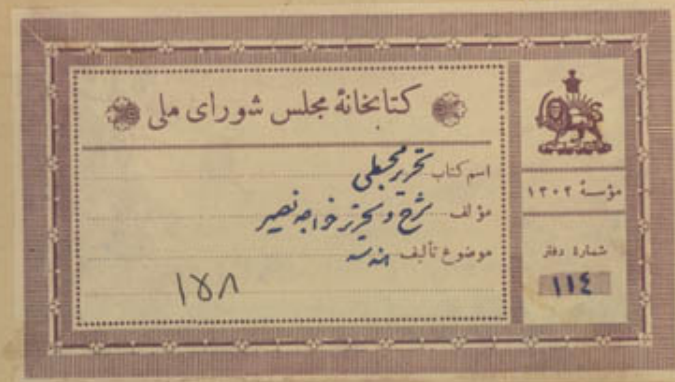 کتابخانهٔ مجلس شورای ملی
اسم کتاب تحریر مجسطی
مؤلف شرح و تحریر خواجه نصیر
موضوع تألیف هندسه
۱۷۸
مؤسسهٔ ۱۳۰۲
شمارهٔ دفتر
۱۱٤